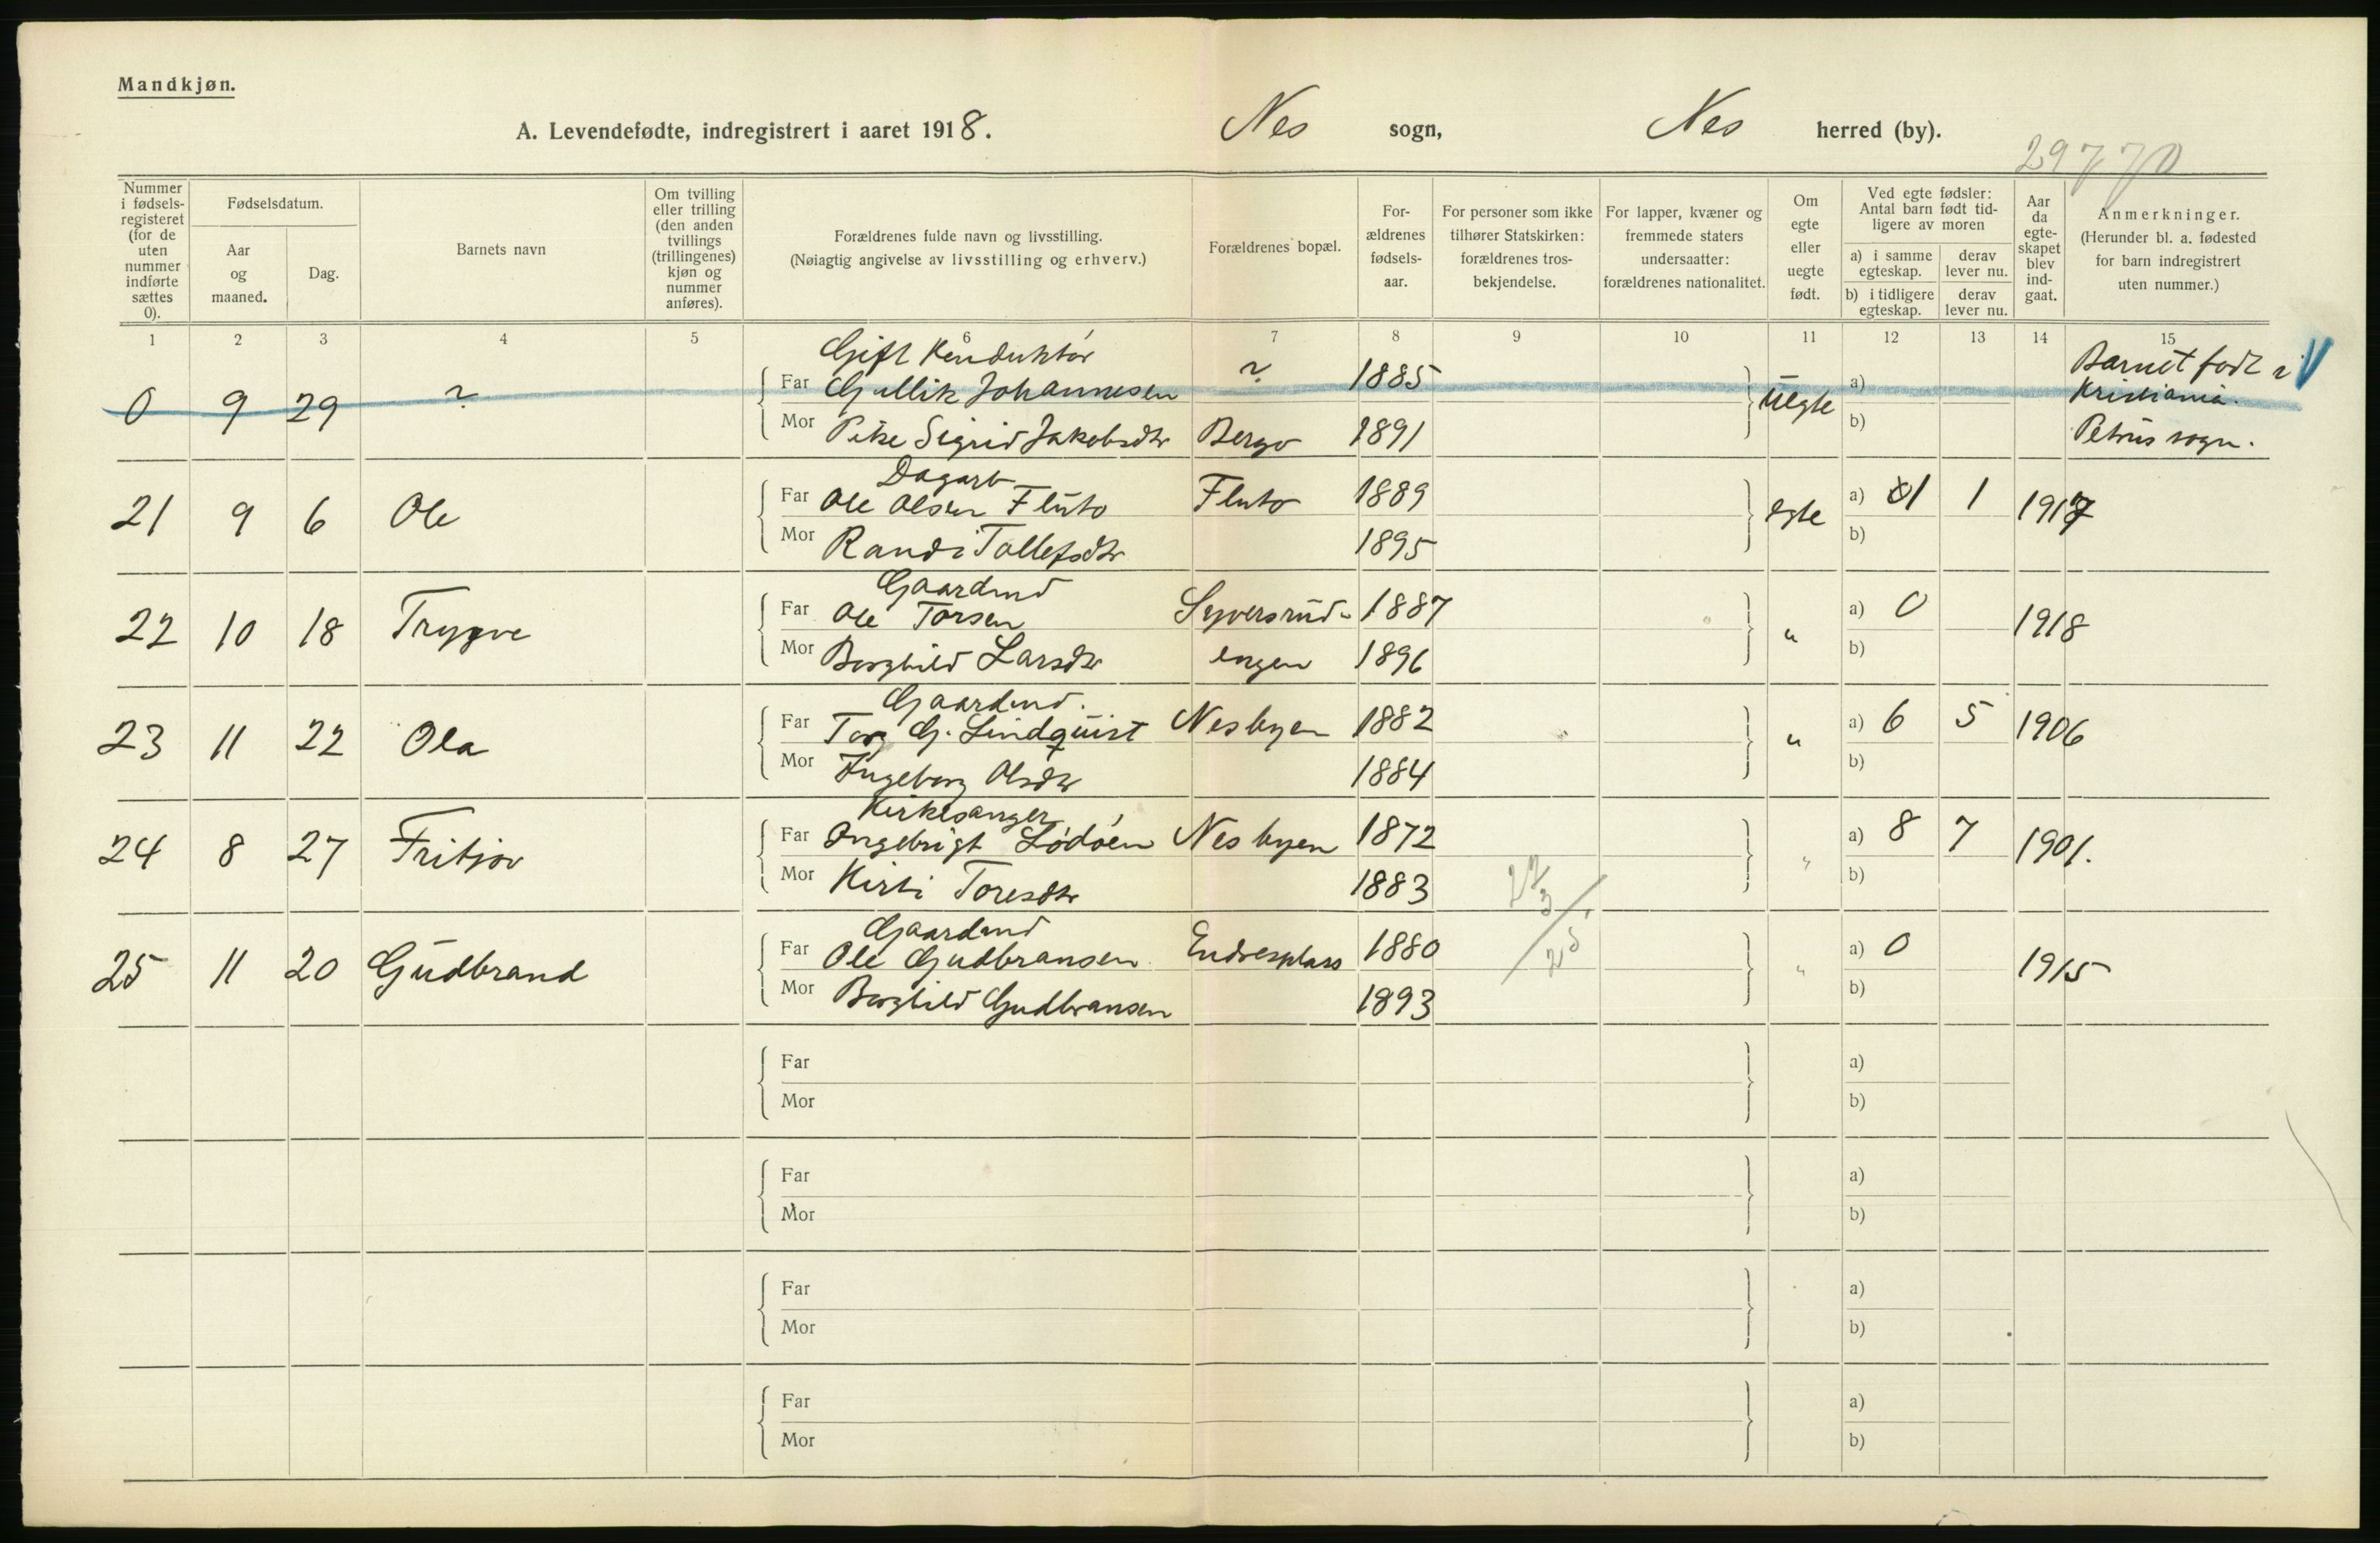 Mandkjøn.
A. Levendefødte, indregistrert i aaret 1918. Nes sogn, Nes herred (by).
29770
Nummer i fødsels-registeret (for de uten nummer indførte sættes 0).
Fødselsdatum.
Aar og maaned.
Dag.
Barnets navn
Om tvilling eller trilling (den anden tvillings (trillingenes) kjøn og nummer anføres).
Forældrenes fulde navn og livsstilling.
(Nøiagtig angivelse av livsstilling og erhverv.)
Forældrenes bopæl.
For-ældrenes fødsels-aar.
For personer som ikke tilhører Statskirken: forældrenes tros-bekjendelse.
For lapper, kvæner og fremmede staters undersaatter: forældrenes nationalitet.
Om egte eller uegte født.
Ved egte fødsler: Antal barn født tid-ligere av moren
a) i samme egteskap. derav lever nu.
b) i tidligere egteskap. derav lever nu.
Aar da egte-skapet blev ind-gaat.
Anmerkninger.
(Herunder bl. a. fødested for barn indregistrert uten nummer.)
1 2 3 4 5 6 7 8 9 10 11 12 13 14 15
Gift Konduktør
0 9 29 ? Far Gullik Johannesen ? 1885 Uegte a) Barnet født i Kristiania.
Mor Pike Sigrid Jakobsdtr Bergo 1891 b) Petrus sogn.
Dagarb
21 9 6 Ole Far Ole Olsen Fluto Fluto 1889 egte a) 1 1 1917
Mor Randi Tollefsdtr 1895 b)
Gaardmd
22 10 18 Trygve Far Ole Torsen Syversrud- 1887 " a) 0 1918
Mor Borghild Larsdtr engen 1896 b)
Gaardmd.
23 11 22 Ola Far G. Lindquist Nesbyen 1882 " a) 6 5 1906
Mor Ingeborg Olsdtr 1884 b)
Kirkesanger
24 8 27 Fritjov Far Ingebrigt Lødøen Nesbyen 1872 " a) 8 7 1901.
Mor Kirsti Toresdtr 1883 b)
Gaardmd
25 11 20 Gudbrand Far Ole Gudbransen Endresplass 1880 " a) 0 1915
Mor Borghild Gudbransen 1893 b)
Far a)
Mor b)
Far a)
Mor b)
Far a)
Mor b)
Far a)
Mor b)